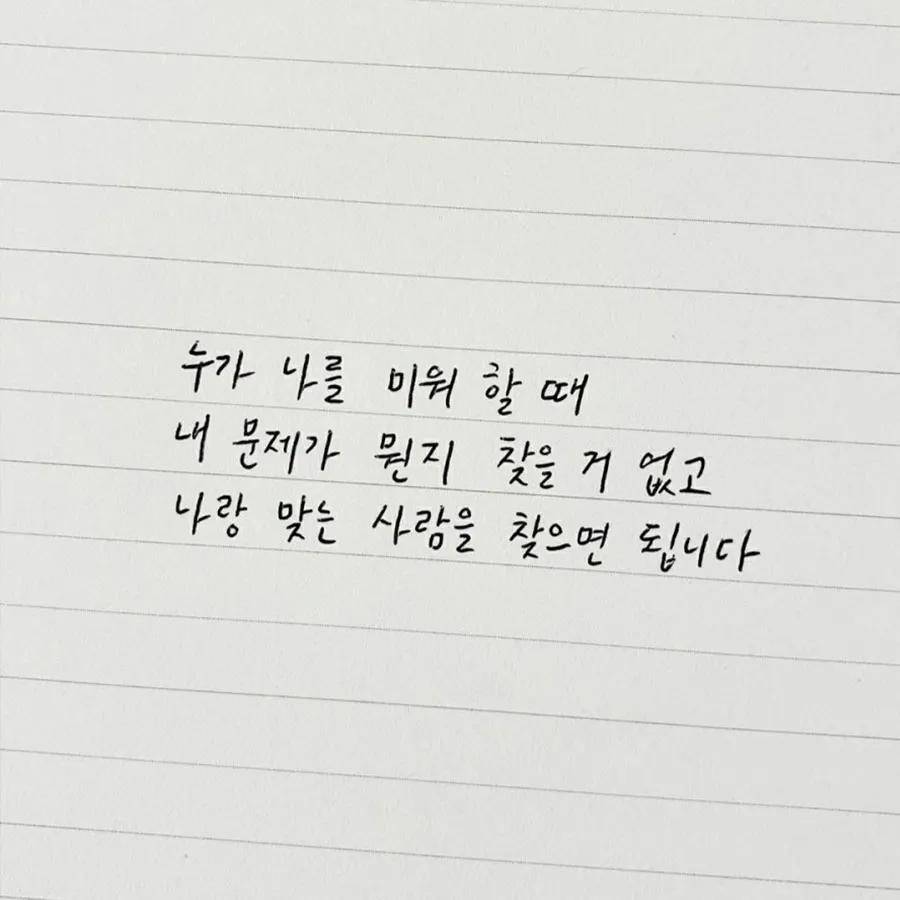 누가 나를 미워 할 때
내 문제가 뭔지 찾을 거 없고
나랑 맞는 사람을 찾으면 됩니다